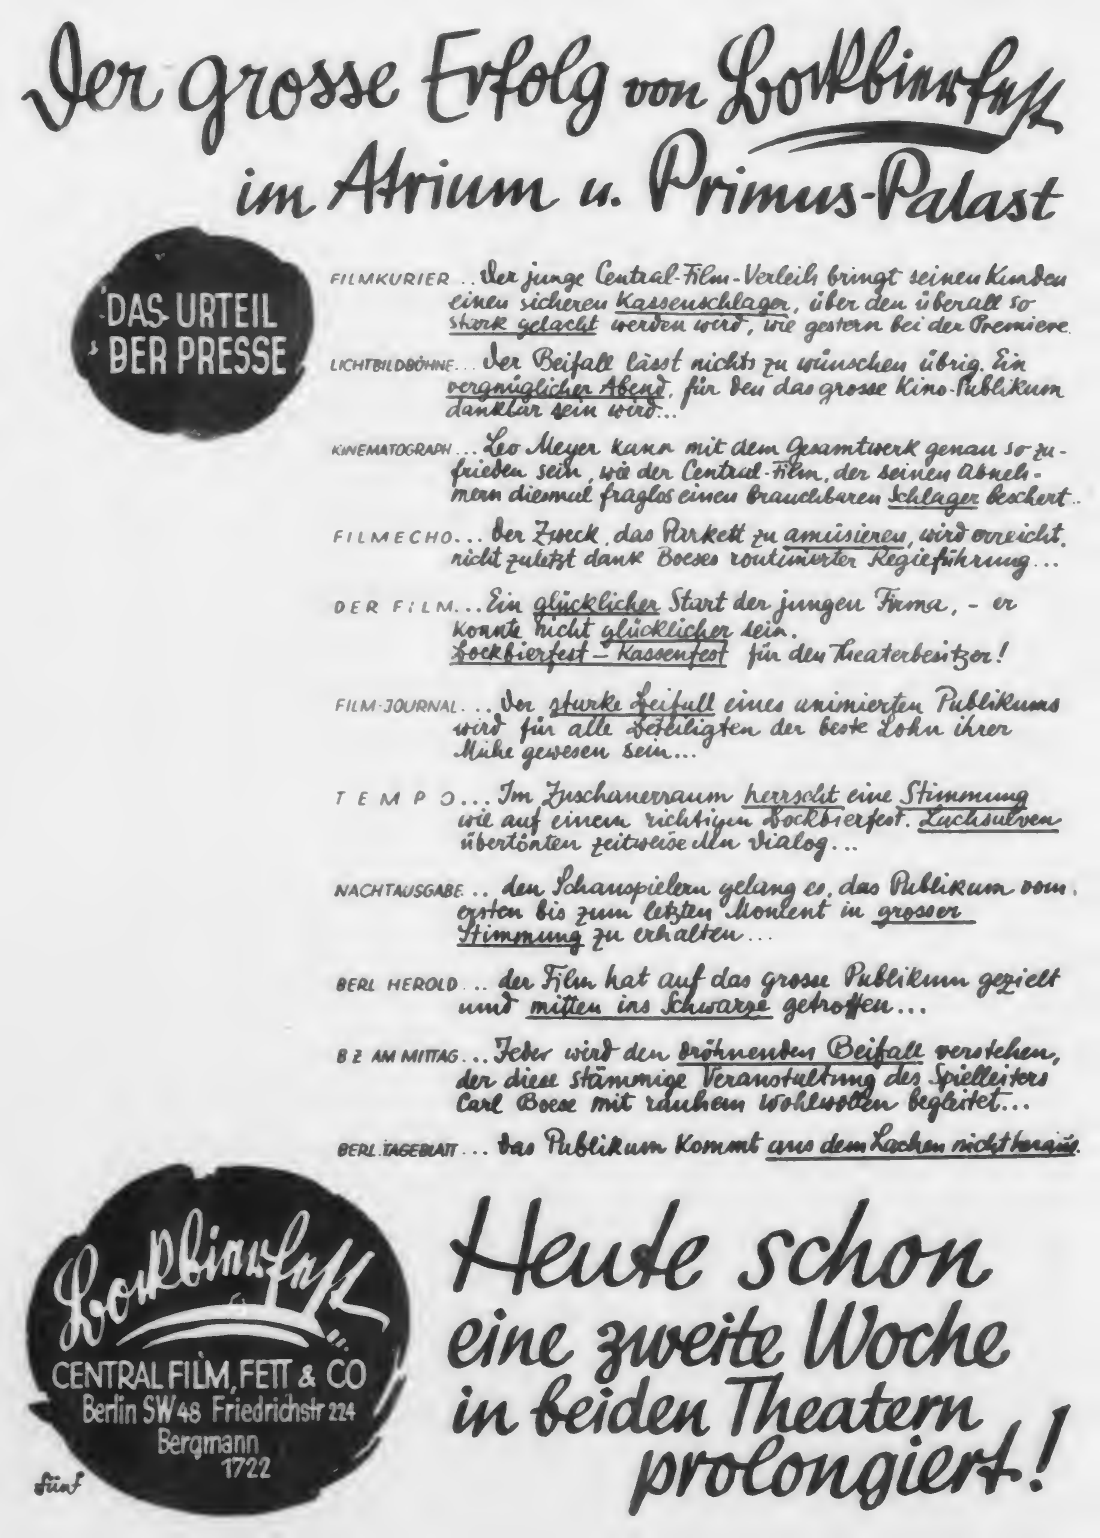 Der grosse Erfolg von Bockbierfest
im Atrium u. Primus-Palast
DAS URTEIL
DER PRESSE
FILMKURIER .. Der junge Central-Film-Verleih bringt seinen Kunden
einen sicheren Kassenschlager, über den überall so
stark gelacht werden wird, wie gestern bei der Premiere.
LICHTBILDBÜHNE... Der Beifall lässt nichts zu wünschen übrig. Ein
vergnüglicher Abend, für den das grosse Kino-Publikum
dankbar sein wird...
KINEMATOGRAPH ... Leo Meyer kann mit dem Gesamtwerk genau so zu-
frieden sein, wie der Central-Film, der seinen Abneh-
mern diesmal fraglos einen brauchbaren Schlager beschert..
FILMECHO... Der Zweck, das Parkett zu amüsieren, wird erreicht,
nicht zuletzt dank Boeses routinierter Regieführung...
DER FILM... Ein glücklicher Start der jungen Firma, - er
konnte nicht glücklicher sein.
Bockbierfest - Kassenfest für den Theaterbesitzer!
FILM-JOURNAL. .. Der starke Beifall eines animierten Publikums
wird für alle Beteiligten der beste Lohn ihrer
Mühe gewesen sein...
TEMPO... Im Zuschauerraum herrscht eine Stimmung
wie auf einem richtigen Bockbierfest. Lachsalven
übertönten zeitweise den Dialog...
NACHTAUSGABE .. den Schauspielern gelang es, das Publikum vom
ersten bis zum letzten Moment in grosser
Stimmung zu erhalten...
BERL HEROLD ... der Film hat auf das grosse Publikum gezielt
und mitten ins Schwarze getroffen...
B Z AM MITTAG... Jeder wird den dröhnenden Beifall verstehen,
der diese stämmige Veranstaltung des Spielleiters
Carl Boese mit rauhem Wohlwollen begleitet...
BERL. TAGEBLATT ... Das Publikum kommt aus dem Lachen nicht heraus.
Bockbierfest...
CENTRAL FILM, FETT & CO
Berlin SW 48 Friedrichstr 224
Bergmann
1722
fünf
Heute schon
eine zweite Woche
in beiden Theatern
prolongiert!